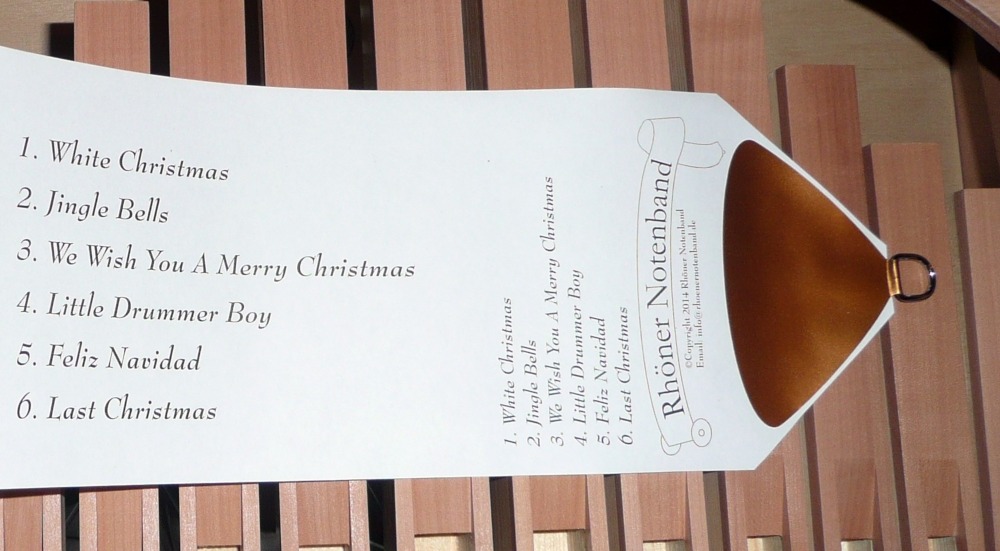 1. White Christmas
2. Jingle Bells
3. We Wish You A Merry Christmas
4. Little Drummer Boy
5. Feliz Navidad
6. Last Christmas
1. White Christmas
2. Jingle Bells
3. We Wish You A Merry Christmas
4. Little Drummer Boy
5. Feliz Navidad
6. Last Christmas
Rhöner Notenband
©Copyright 2014 Rhöner Notenband
Email: info@rhoenernotenband.de